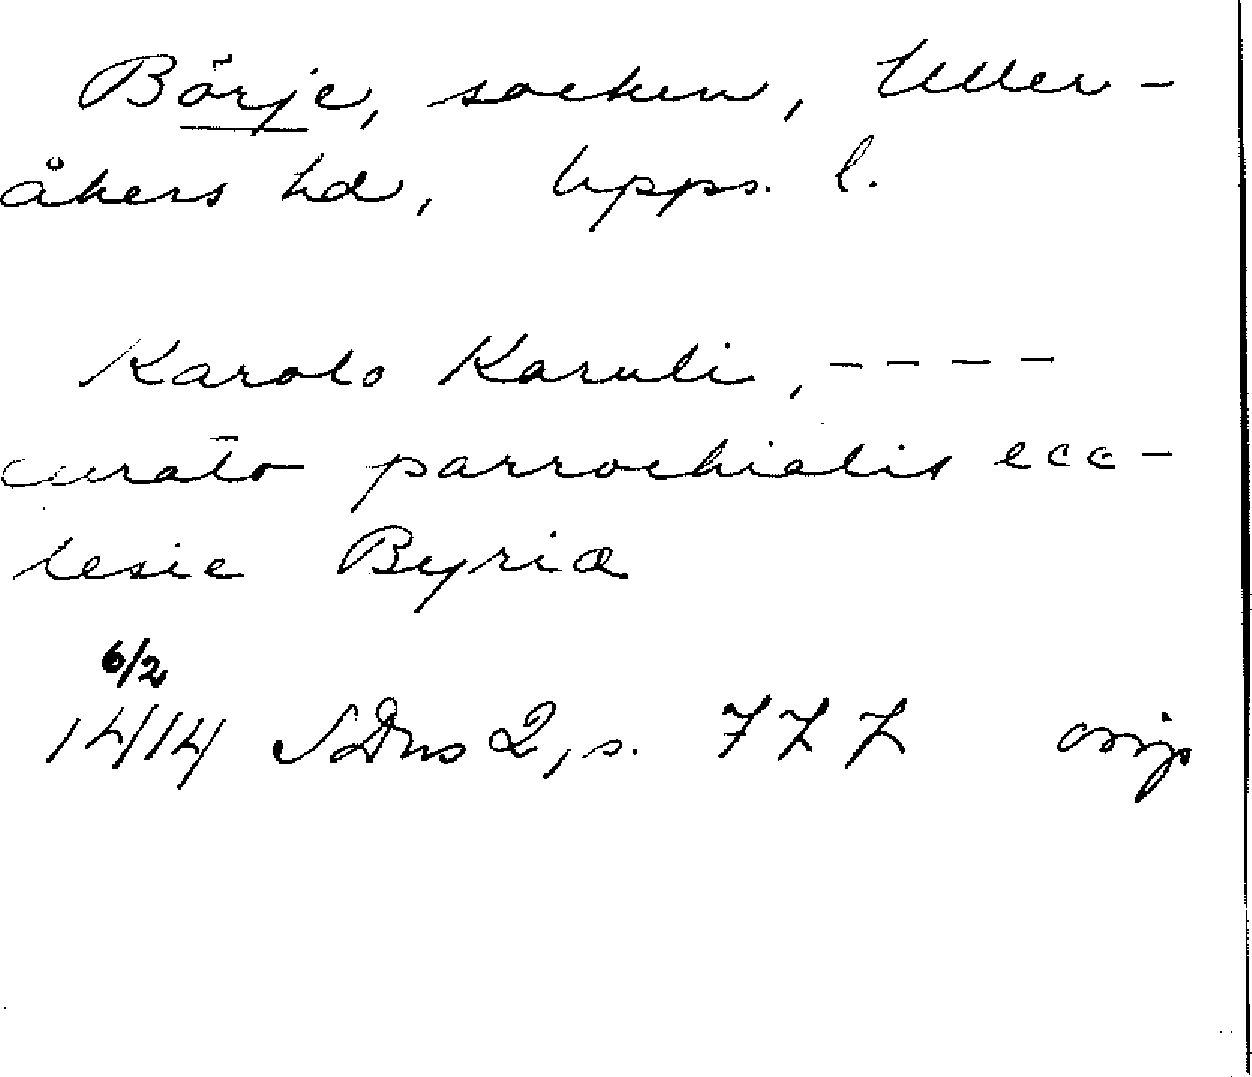 Börje, socken, Uller-
åkers hd, Upps. l.
Karolo Karuli, ----
curato parrochialis ecc-
lesie Byriæ
6/2
1414 SDns 2, s. 777 orig